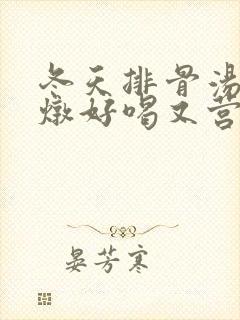 冬天排骨汤
燉好喝又营
晏芳寒